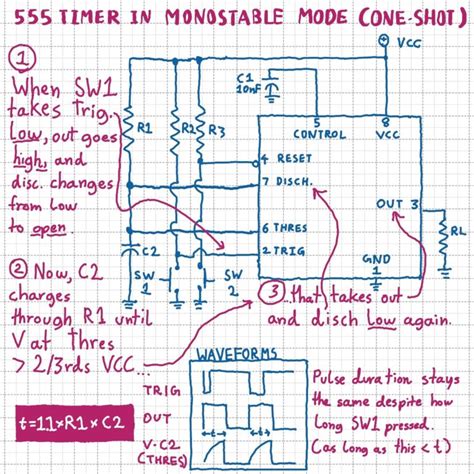 555 TIMER IN MONOSTABLE MODE (ONE-SHOT)
1
When SW1
takes trig.
Low, out goes
high, and
disc. changes
from low
to open.
2 Now, C2
charges
through R1 until
V at Thres
> 2/3rds VCC...
3 ...that takes out
and disch Low again.
VCC
C1
10nF
R1
R2
R3
5
CONTROL
8
VCC
4 RESET
7 DISCH.
OUT 3
6 THRES
2 TRIG
GND
1
RL
C2
SW
1
SW
2
t=11×R1×C2
WAVEFORMS
TRIG
OUT
←t→
←t→
V-C2
(THRES)
Pulse duration stays
the same despite how
long SW1 pressed.
(as long as this < t)